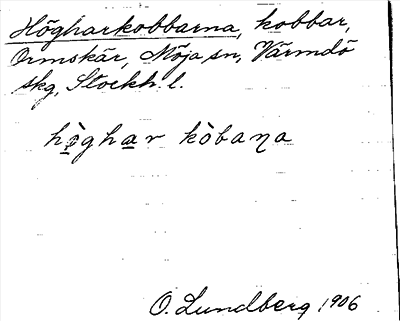 Högharkobbarna, kobbar,
Ormskär, Möja sn, Värmdö
skg, Stockh. l.
hò̤ghar kòbaṇa
O. Lundberg 1906